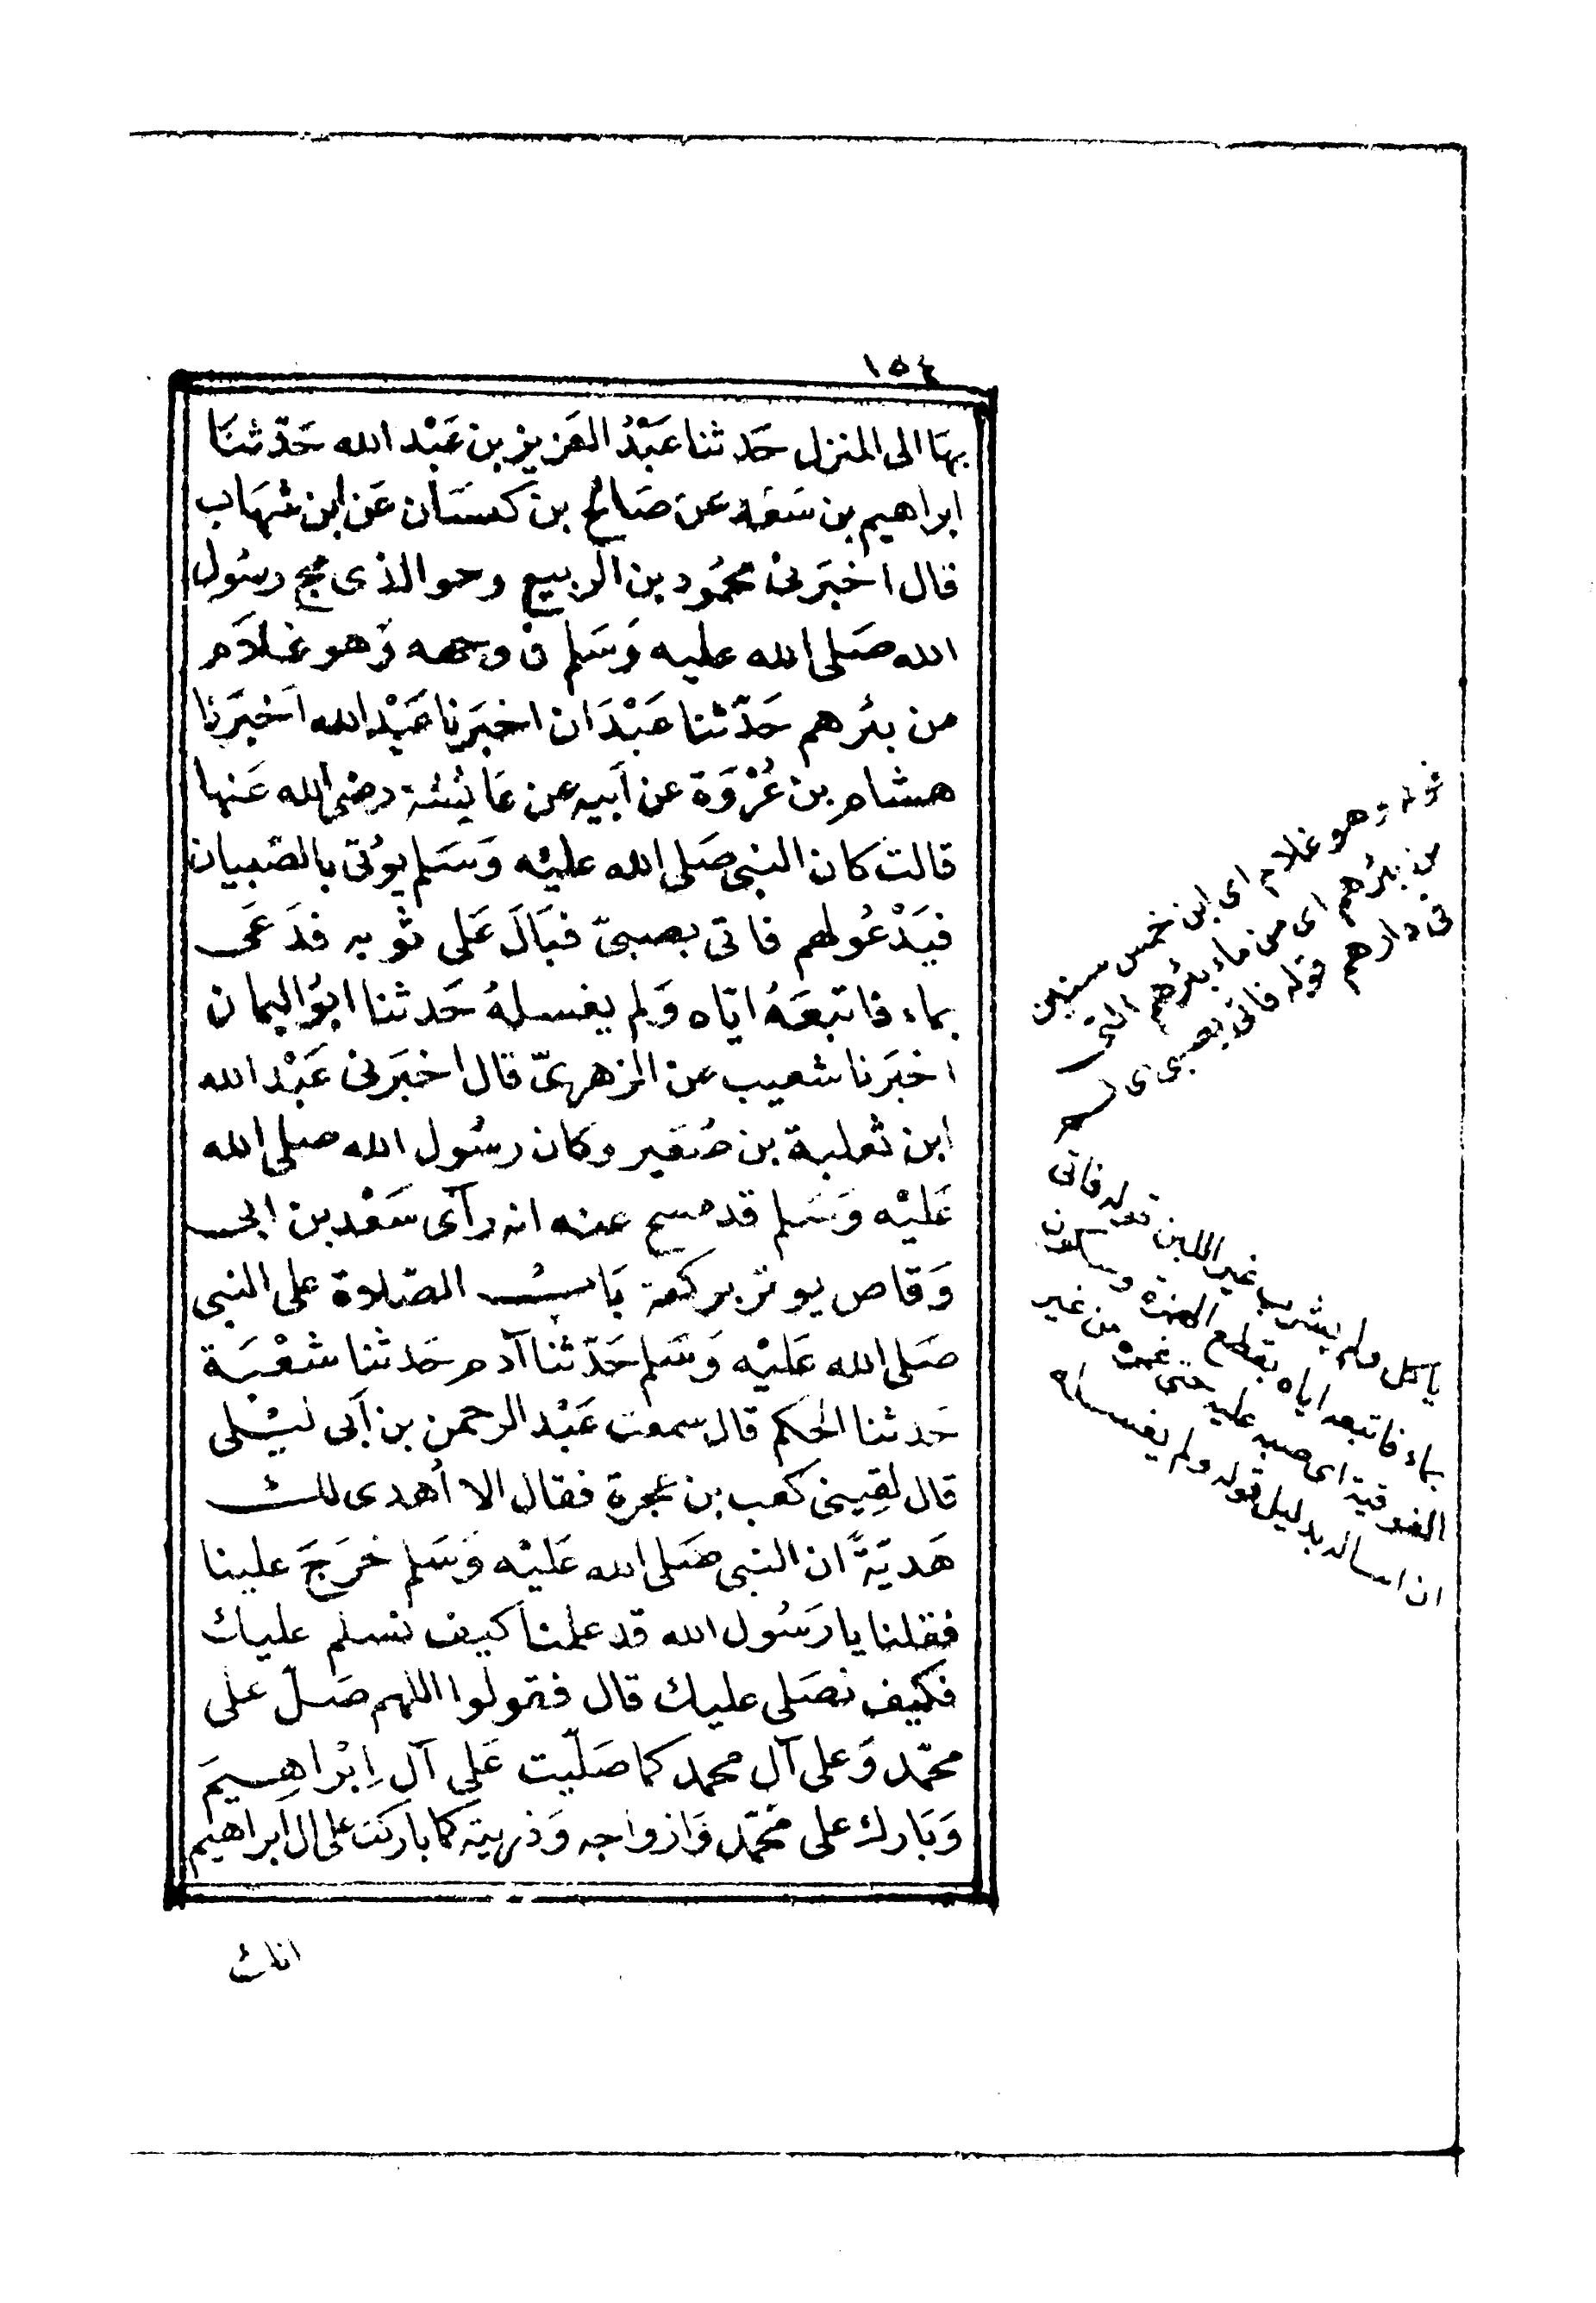 ١٥٤
بهَا الى المنزل حَدثنا عَبْدُ العَزيز بن عَبْد الله حَدّثنَا
ابراهيم بن سَعْد عن صَالح بن كيسَان عَن ابن شهَاب
قال اخبَرنى محمُود بن الربيع وهو الذى مج رسُول
الله صَلى الله عليه وَسَلم فى وجهه وَهو غلَام
من بئرهم حَدّثنا عَبْدَان اخبَرنا عَبْد الله اخبَرنا
هشام بن عُرْوَة عن اَبيه عن عَائشة رضى الله عَنها
قالت كان النبى صَلى الله عليْه وَسَلم يؤتى بالصّبيان
فيَدْعُو لهم فاتى بصبىّ فبَالَ عَلى ثوبه فدَعَى
بماء فاتبعَهُ اياه وَلم يغسلهُ حَدثنا ابوُ اليمان
اخبَرنا شعيب عن الزهرىّ قال اخبَرنى عَبْد الله
ابن ثعلبة بن صُعَير وكان رسُول الله صلى الله
عَليْه وَسَلم قد مسح عنه انه رآى سَعْد بن ابى
وَقاص يوتر بركعة بَابُ الصّلاة على النبى
صَلى الله عَليْه وَسَلم حَدّثنا آدم حَدثنا شعْبَة
حَدثنا الحكم قال سمعت عَبْد الرحمن بن اَبى ليْلى
قال لقِينى كعب بن عجرة فقال الا اُهدى لك
هَديَةً ان النبى صَلى الله عَليْه وَسَلم خرَجَ علينا
فقلنا يا رَسُول الله قد علمنا كيف نسلم عليك
فكيف نصَلى عليك قال فقولوا اللهم صَلّ على
محمّد وَعلى آل محمد كما صَلّيت عَلى آل اِبْراهِيمَ
وَبَارك على محَمّد وَازواجه وَذريته كما باركت على ال ابراهيم
انك
قوله وهو غلام اى ابن خمس سنين
من بئرهم اى من ماء بئرهم التى
فى دارهم قوله فاتى بصبى اى لم
ياكل ولم يشرب غير اللبن قوله فاتى
بماء فاتبعه اياه بقطع الهمزة وسكون
الفوقية اى صبه عليه حتى غمره من غير
ان اساله بدليل قوله ولم يغسله